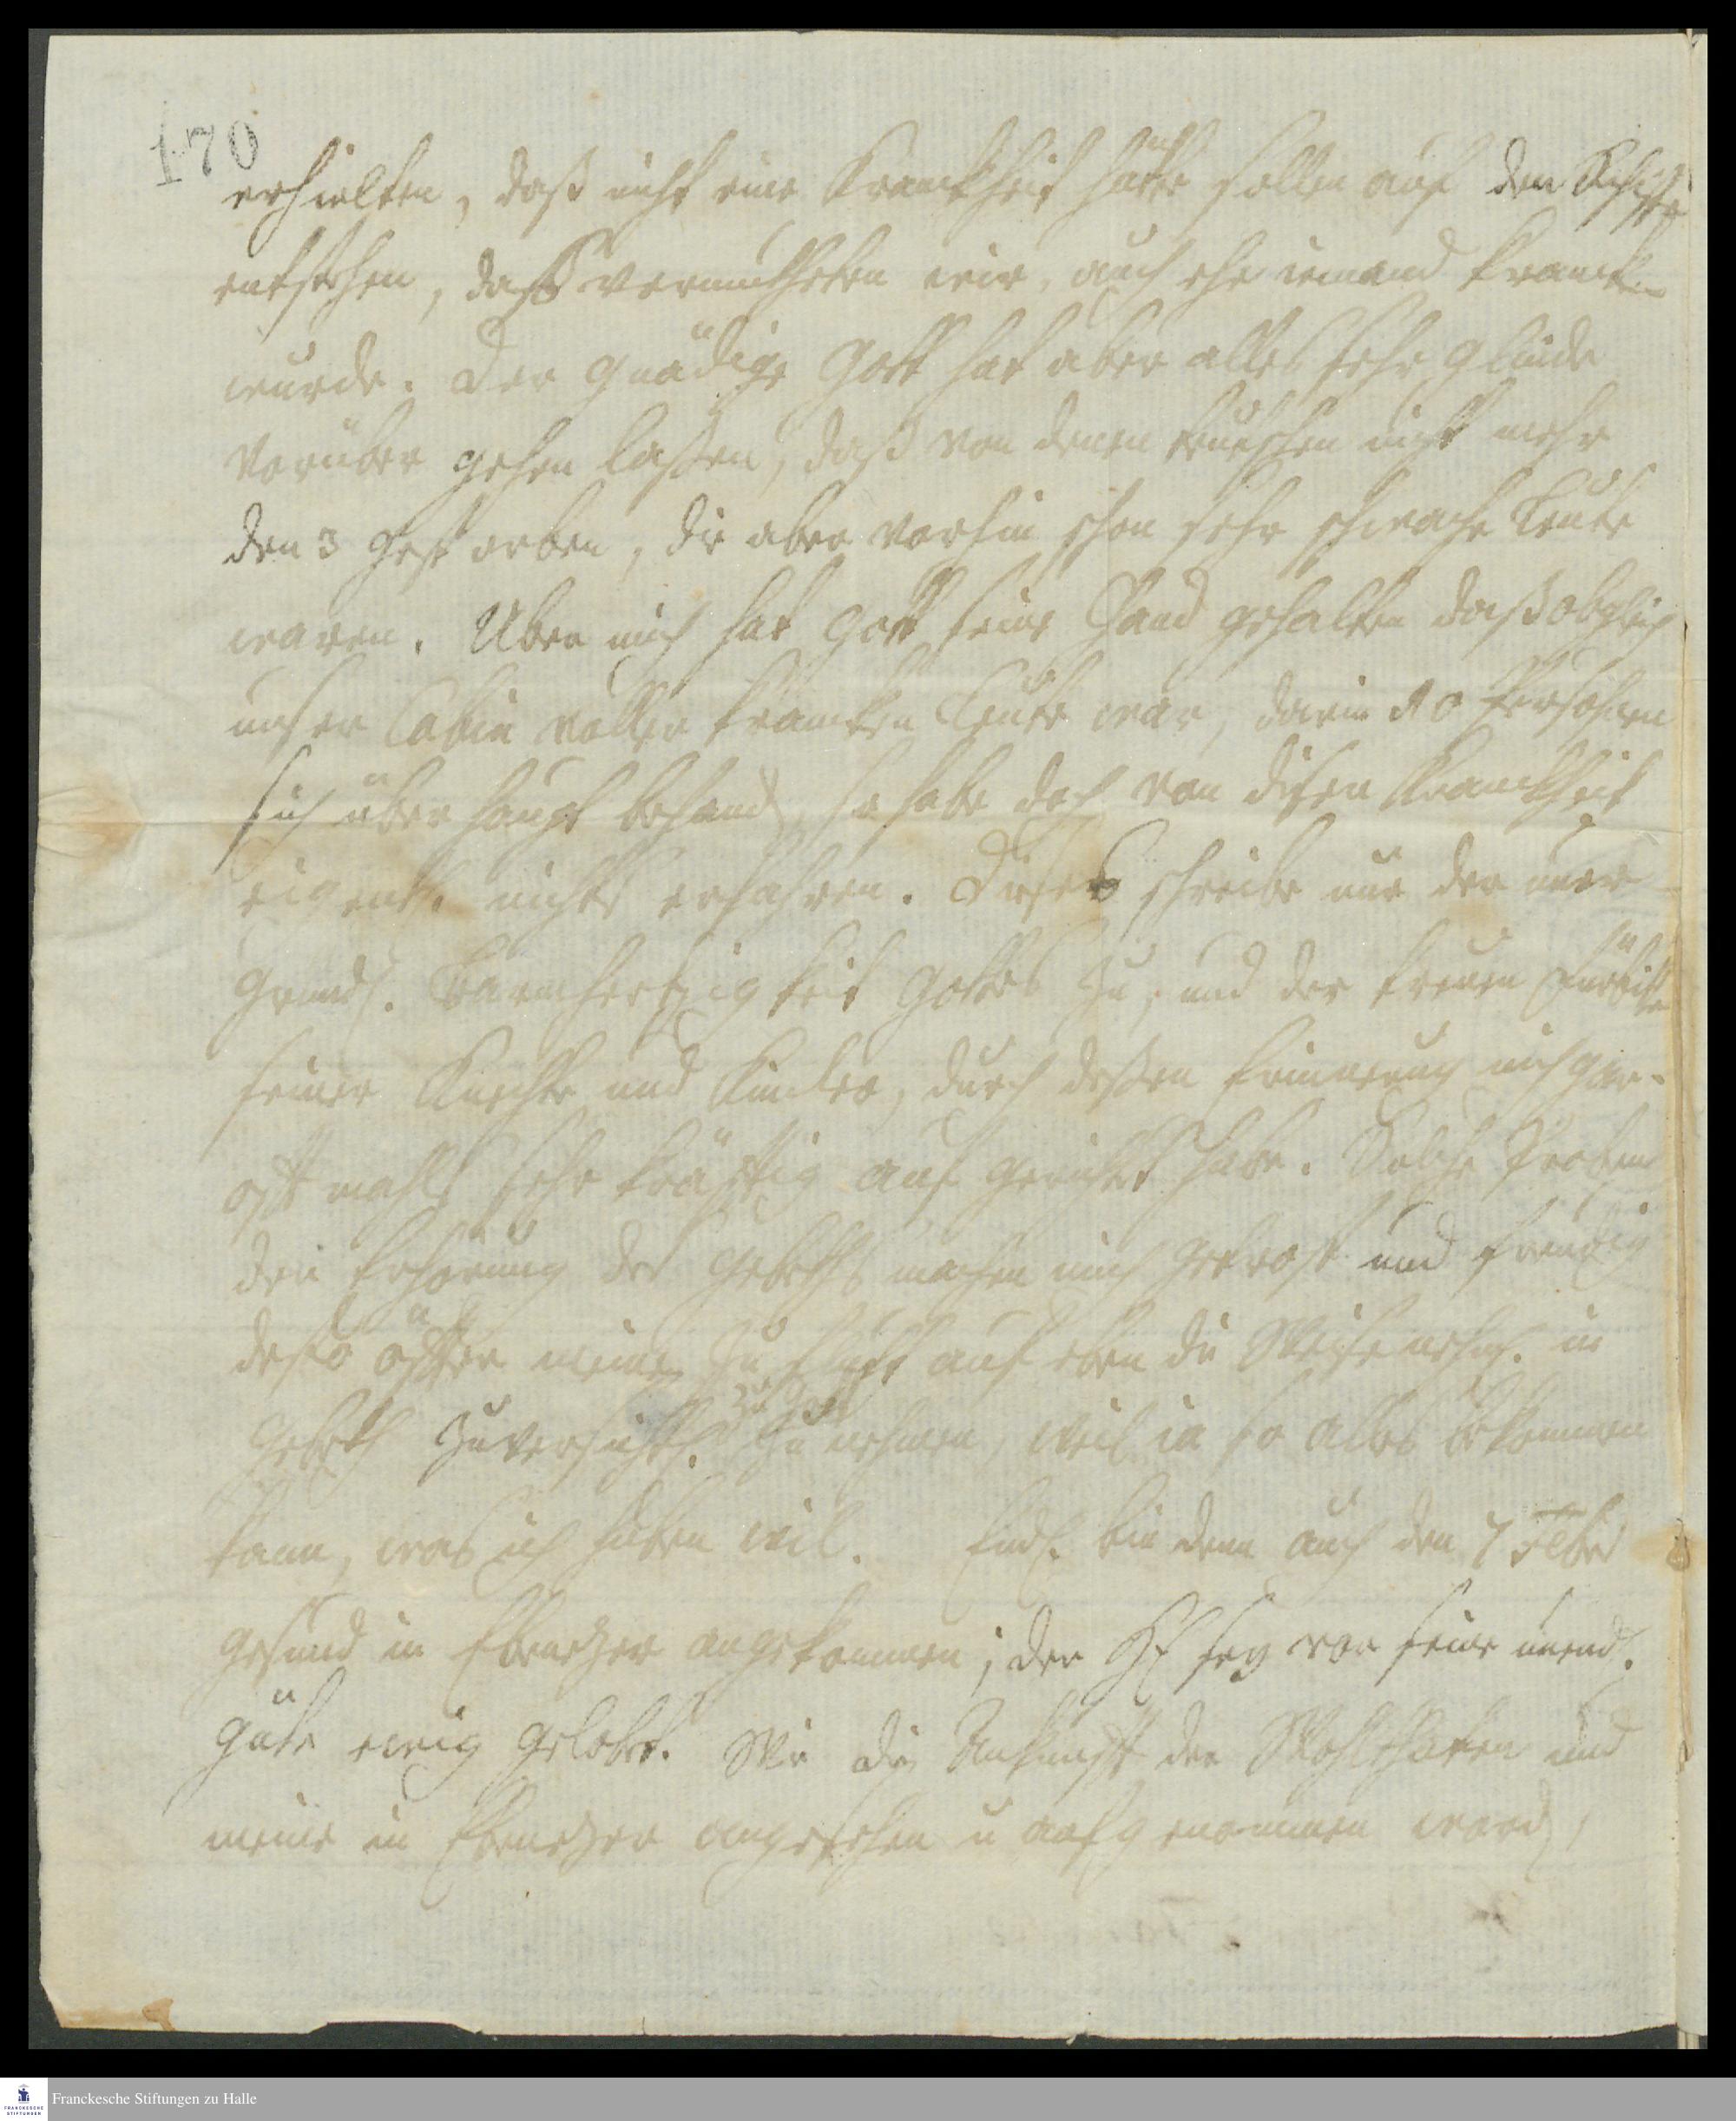 170
erhielten, daß nicht eine Kranckheit hätte sollen auf dem Schiffe
entstehen, daß vermutheten wir, auch ehe iemand kranck
wurde. Der gnädige Gott hat aber alles sehr gelinde
vorüber gehen laßen, daß von denen teutschen nicht mehr
den 3 gestorben, die aber vorhin schon sehr schwache Leute
waren. Uber mich hat Gott seine Hand gehalten daß obgleich
unser Cabin voller krancken Leute war, darin 10 Persohnen
sich überhaupt befand, so habe doch von diser Kranckheit
eigentl. nichts erfahren. Dieses schreibe nur der uner-
gründl. Barmhertzigkeit Gottes zu, und der treuen Fürbitte
seiner Knechte und Kinder, durch deßen Erinnerung mich gar
offtmahls sehr kräfftig aufgericht habe. Solche Proben
der Erhörung des Gebeths machen mich getrost und freudig
desto öffter meine Zuflucht auf eben die Weise nehml. in
Gebeth zuversichtl. zu Gott
zu nehmen, weil ia so alles bekommen
kann, was ich haben wil. Endl. bin denn auch den 7
gesund in Ebenezer angekommen; der HE sey vor seine unendl.
Güte ewig gelobet. Wie die Ankunfft der Wohlthaten und
meine in Ebenezer angesehen u aufgenommen word,
Franckesche Stiftungen zu Halle
FRANCKESCHE
STIFTUNGEN